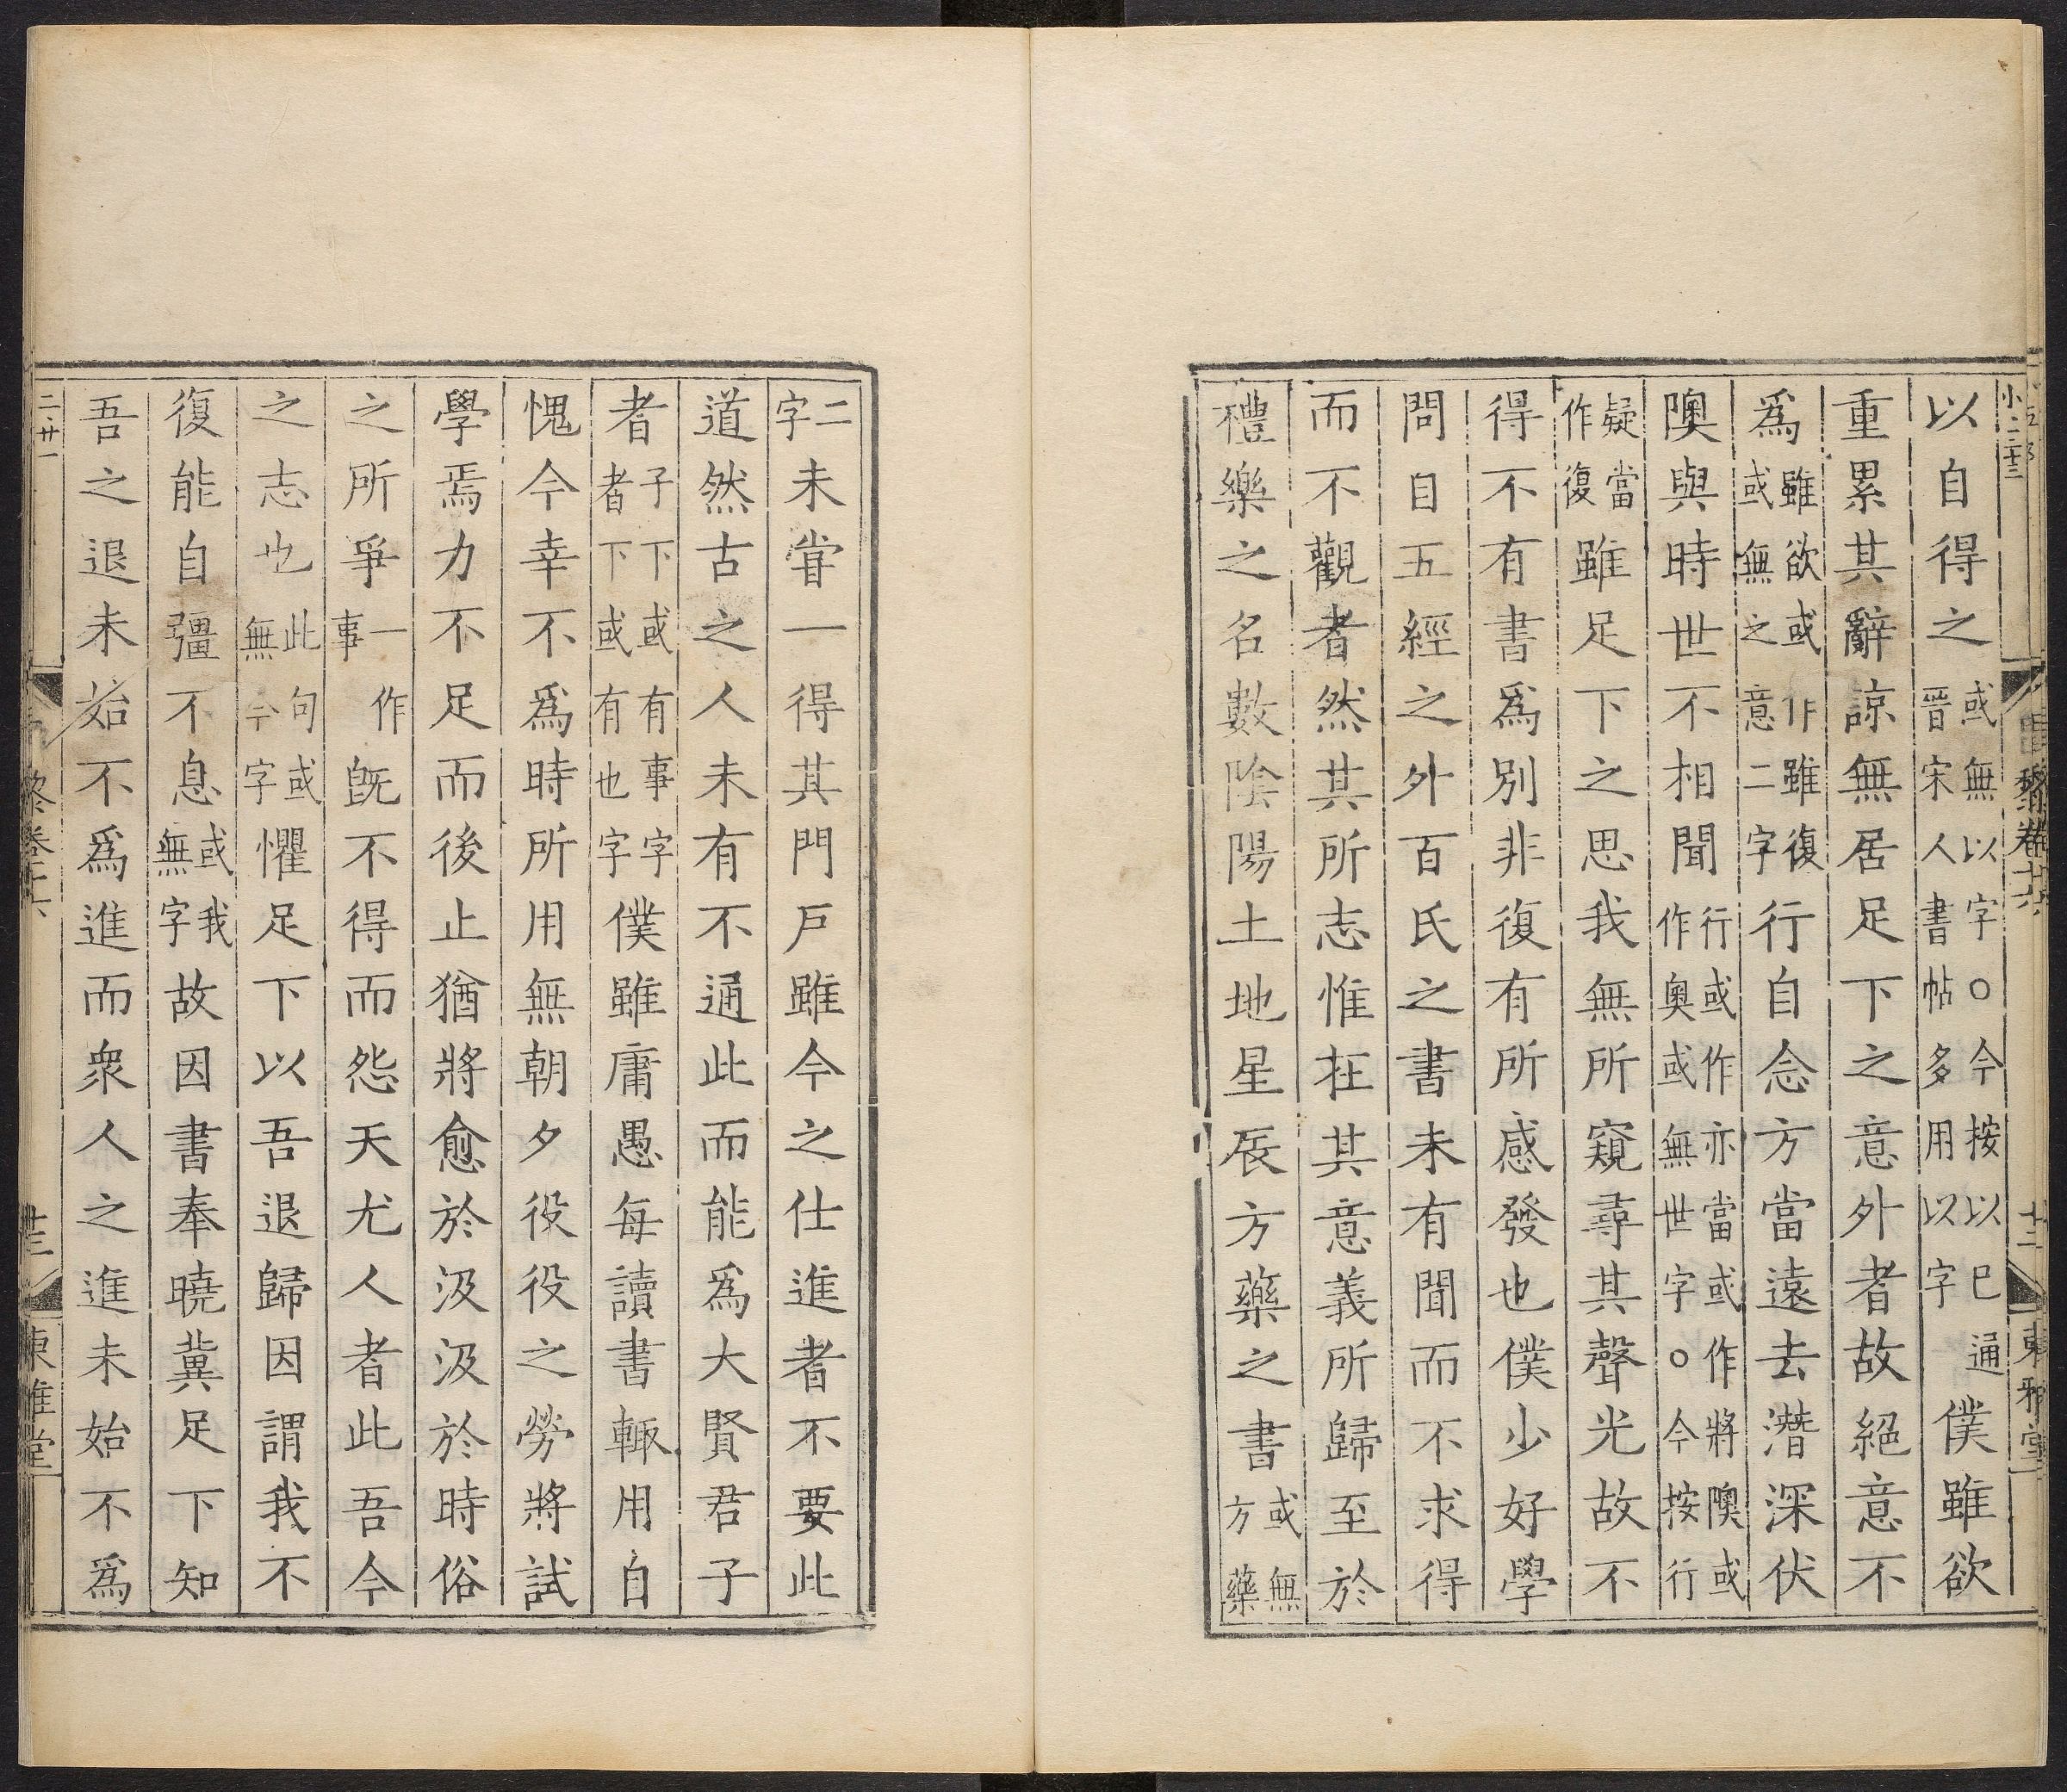 以自得之或無以字○今按以巳通晉宋人書帖多用以字僕雖欲
重累其辭諒無居足下之意外者故絕意不
爲雖欲或作雖復或無之意二字行自念方當遠去潛深伏
隩與時世不相聞行或作亦當或作將隩或作奧或無世字○今按行
疑當作復雖足下之思我無所窺尋其聲光故不
得不有書爲別非復有所感發也僕少好學
問自五經之外百氏之書未有聞而不求得
而不觀者然其所志惟在其意義所歸至於
禮樂之名數陰陽土地星辰方藥之書或無方藥
二字未甞一得其門戶雖今之仕進者不要此
道然古之人未有不通此而能爲大賢君子
者子下或有事字者下或有也字僕雖庸愚每讀書輙用自
愧今幸不爲時所用無朝夕役役之勞將試
學焉力不足而後止猶將愈於汲汲於時俗
之所爭一作事旣不得而怨天尤人者此吾今
之志也此句或無今字懼足下以吾退歸因謂我不
復能自彊不息或無我字故因書奉曉冀足下知
吾之退未始不爲進而衆人之進未始不爲
二廿一
東雅堂